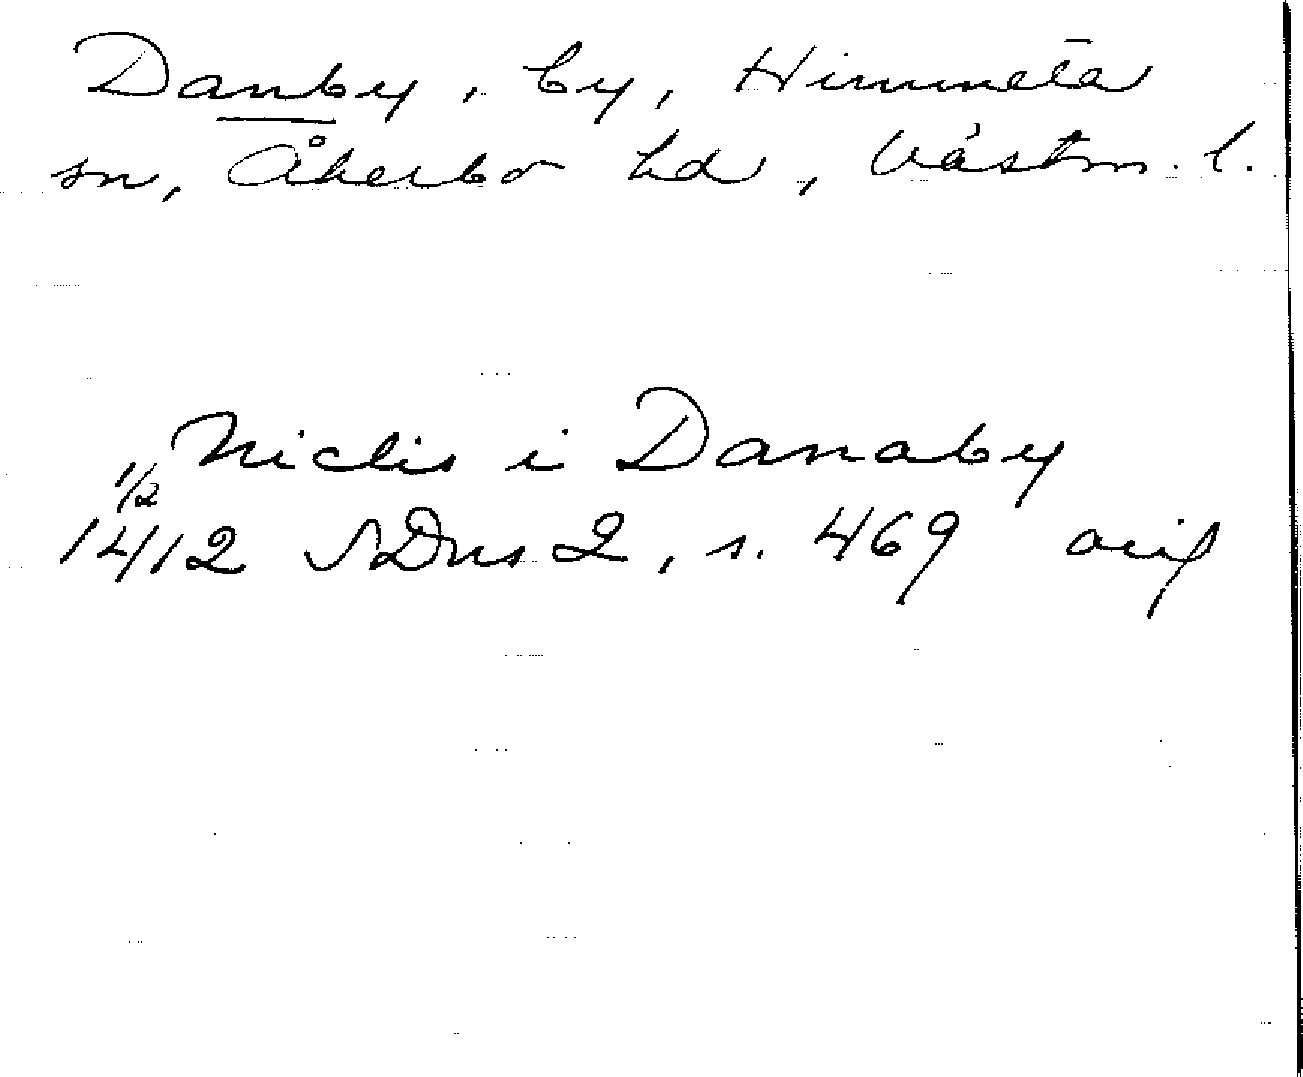 Danby, by, Himmeta
sn, Åkerbo hd, Västm. l.
Niclis i Danaby
1/2
1412 SDns 2, s. 469 orig